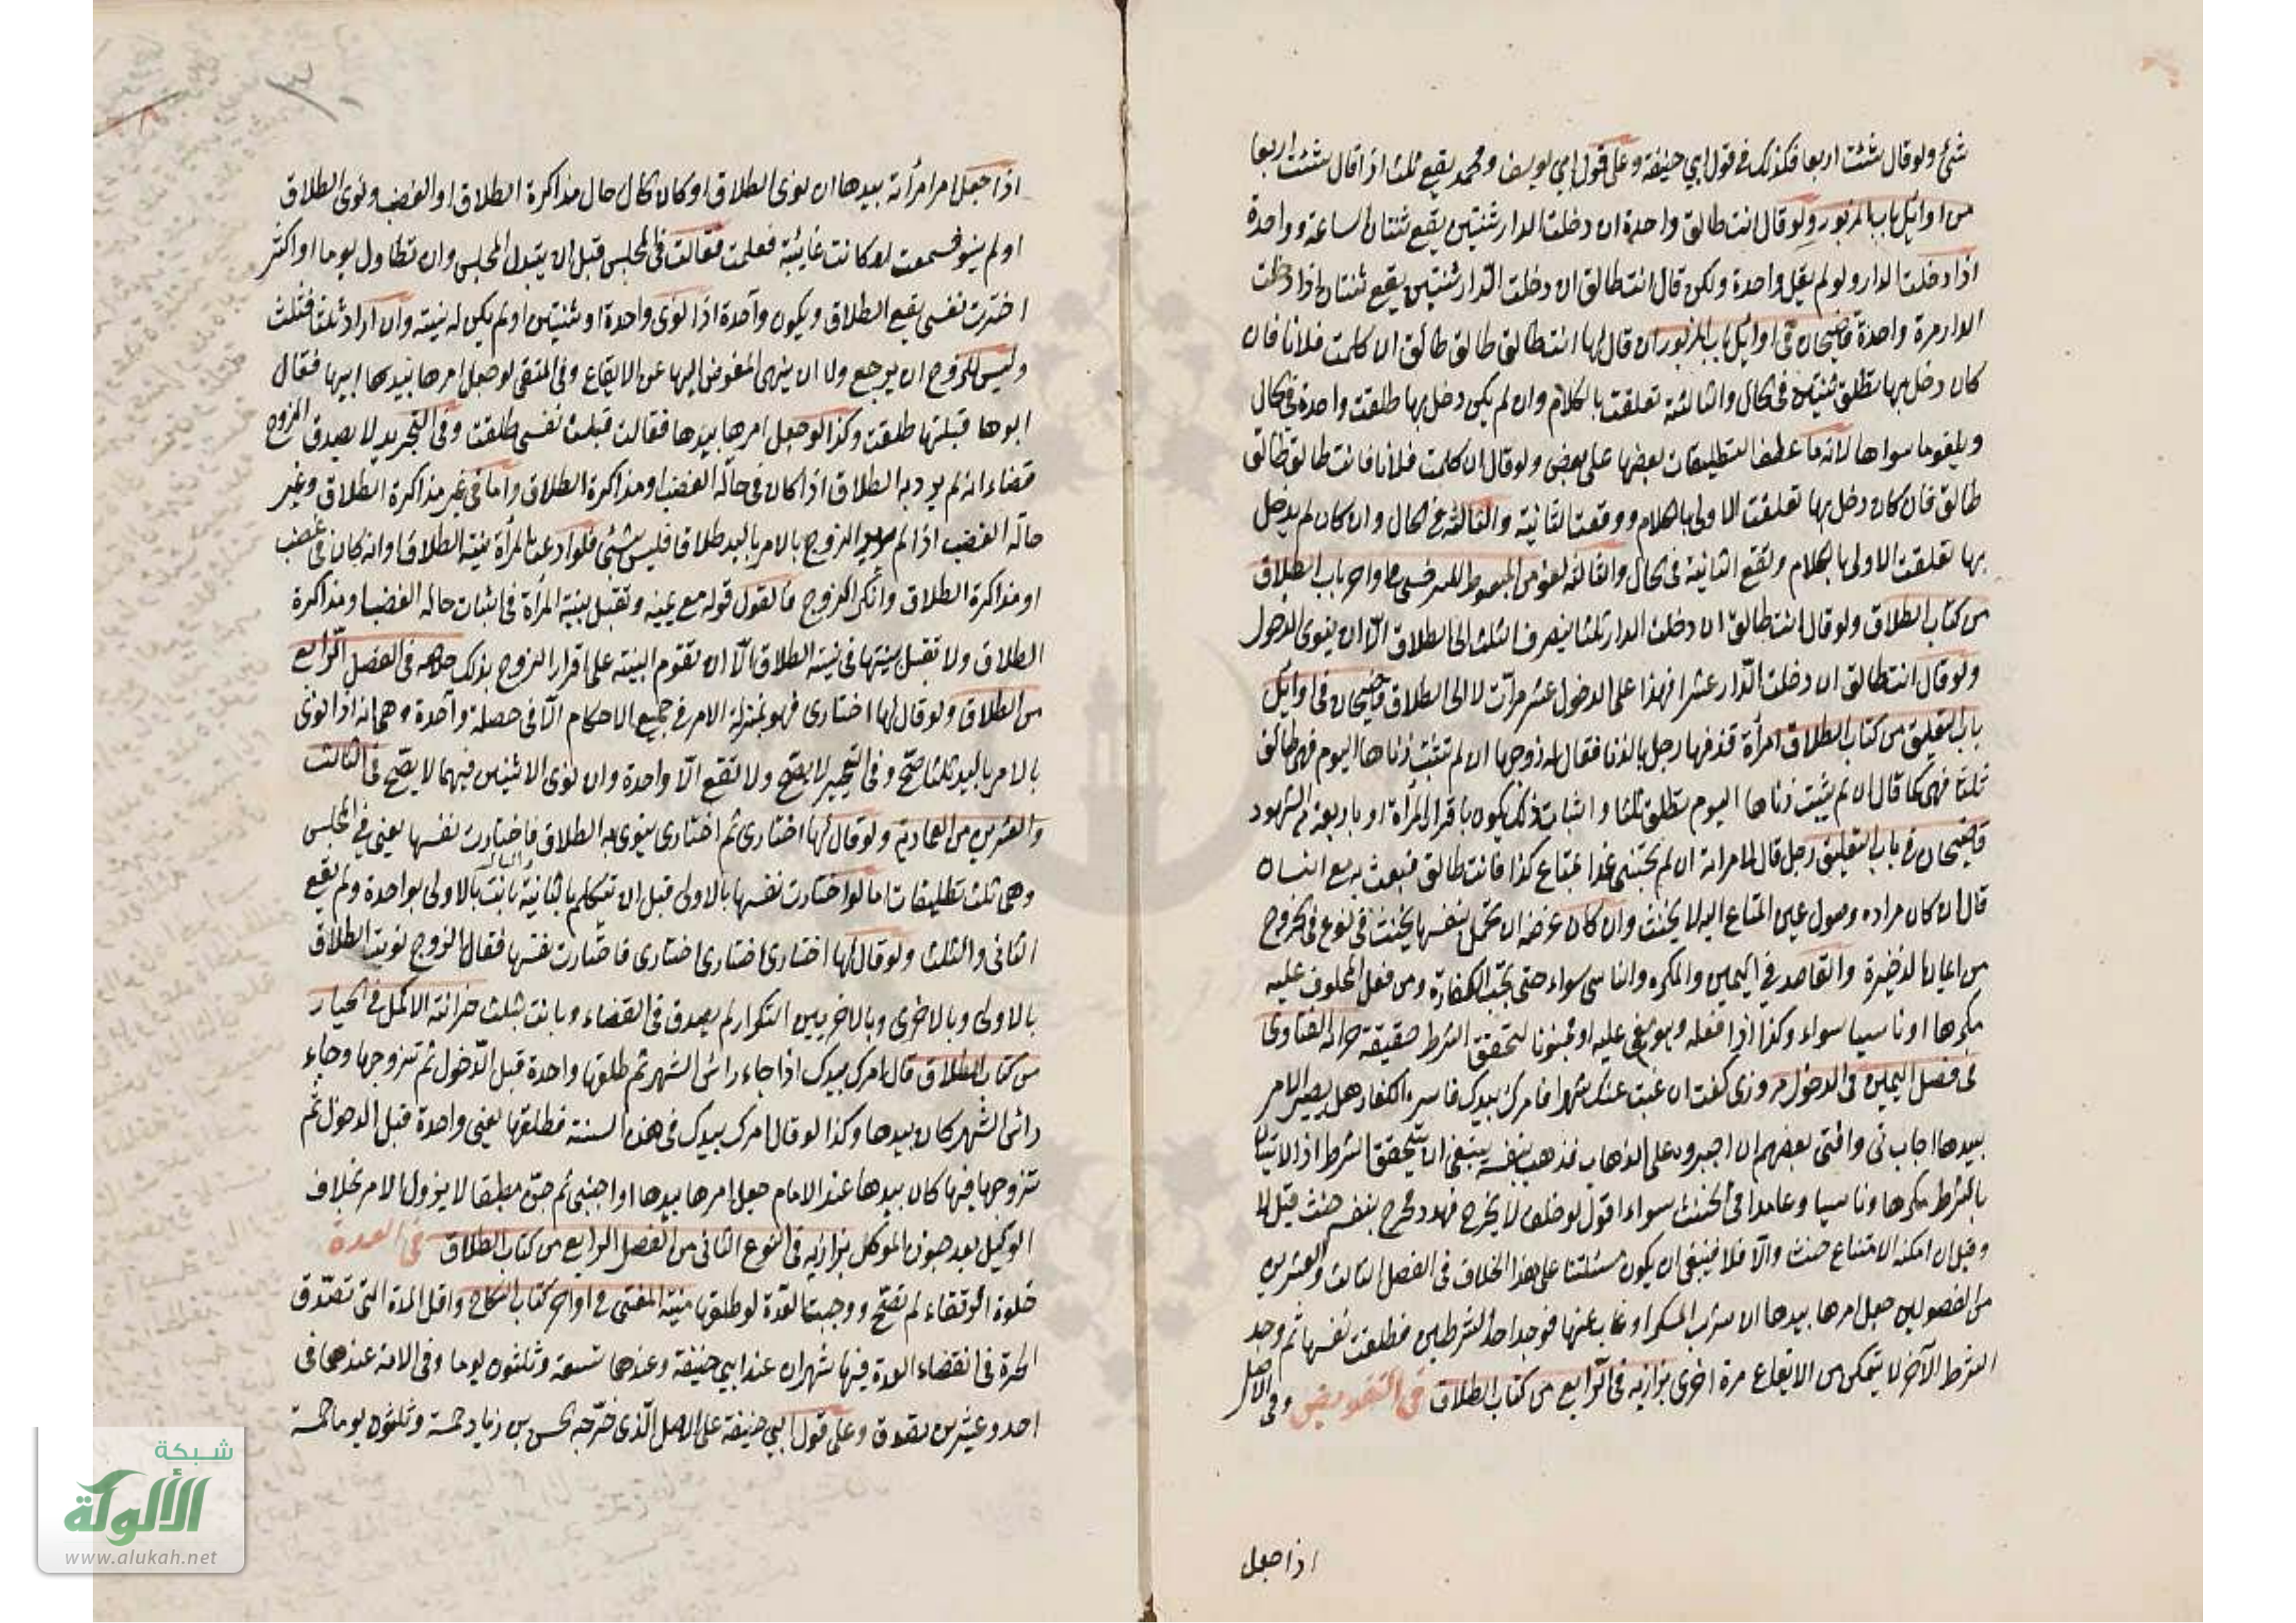 شئ ولو قال شئت اربعا فكذلك في قول ابي حنيفة وعلى قول ابي يوسف ومحمد يقع ثلث اذا قال شئت اربعا
من اوائل باب المزبور ولو قال انت طالق واحدة ان دخلت الدار ثنتين يقع ثنتان الساعة وواحدة
اذا دخلت الدار ولو لم يقل واحدة ولكن قال انت طالق ان دخلت الدار ثنتين يقع ثنتان اذا دخلت
الدار مرة واحدة قاضيخان في اوائل باب المزبور ان قال لها انت طالق طالق طالق ان كلمت فلانا فان
كان دخل بها تطلق ثنتين في الحال والثالثة تعلقت بالكلام وان لم يكن دخل بها طلقت واحدة في الحال
ويلغو ما سواها لانه ما عطف التطليقات بعضها على بعض ولو قال ان كلمت فلانا فانت طالق طالق
طالق فان كان دخل بها تعلقت الاولى بالكلام ووقعت الثانية والثالثة في الحال وان كان لم يدخل
بها تعلقت الاولى بالكلام وتقع الثانية في الحال والثالثة لغو من المبسوط للسرخسي واخر باب الطلاق
من كتاب الطلاق ولو قال انت طالق ان دخلت الدار ثلثا ينصرف الثلث الى الطلاق الا ان ينوى الدخول
ولو قال انت طالق ان دخلت الدار عشرا فهذا على الدخول عشر مرات لا الى الطلاق قاضيخان في اوائل
باب التعليق من كتاب الطلاق امرأة قذفها رجل بالزنا فقال له زوجها ان لم تثبت زناها اليوم فهى طالق
ثلثا فهى كما قال ان لم يثبت زناها اليوم تطلق ثلثا واثبات ذلك يكون باقرار المرأة او باربعة من الشهود
قاضيخان في باب التعليق رجل قال لامراته ان لم تجئني غدا بمتاع كذا فانت طالق فبعثت به مع انسان
قال ان كان مراده وصول عين المتاع اليه لا يحنث وان كان غرضه ان تحمل بنفسها يحنث في نوع في الخروج
من ايمان الذخيرة والقاصد في اليمين والمكره والناسى سواء حتى تجب الكفارة ومن فعل المحلوف عليه
مكرها او ناسيا سواء وكذا اذا فعله وهو مغمى عليه او مجنونا لتحقق الشرط حقيقة خزانة الفتاوى
في فصل اليمين في الدخول مروزى كفت ان غبت عنك شهرا فامرك بيدك فاسره الكفار هل يصير الامر
بيدها اجاب نى وافتى بعضهم ان اجبروه على الذهاب فذهب بنفسه ينبغى ان يتحقق الشرط اذ الاتيان
بالشرط مكرها وناسيا وعامدا في الحنث سواء اقول لو حلف لا يخرج فهدد فخرج بنفسه حنث قيل لا
وقيل ان امكنه الامتناع حنث والا فلا فينبغى ان يكون مسئلتنا على هذا الخلاف في الفصل الثالث والعشرين
من الفصولين جعل امرها بيدها ان شرب المسكر او غاب عنها فوجد احد الشرطين فطلقت نفسها ثم وجد
الشرط الآخر لا يتمكن من الايقاع مرة اخرى بزازيه في الرابع من كتاب الطلاق في التفويض وفي الاصل
اذا جعل
اذا جعل امر امرأته بيدها ان نوى الطلاق او كان الحال حال مذاكرة الطلاق او الغضب ونوى الطلاق
او لم ينو فسمعت او كانت غائبة فعلمت فقالت في المجلس قبل ان يتبدل المجلس وان تطاول يوما او اكثر
اخترت نفسى يقع الطلاق ويكون واحدة اذا نوى واحدة او ثنتين او لم يكن له نيته وان اراد ثلثا فثلث
وليس للزوج ان يرجع ولا ان ينهى المفوض اليها عن الايقاع وفى المنتقى لو جعل امرها بيدها ابيها فقال
ابوها قبلتها طلقت وكذا لو جعل امرها بيدها فقالت قبلت نفسى طلقت وفى التجريد لا يصدق الزوج
قضاء انه لم يرد به الطلاق اذا كان في حالة الغضب او مذاكرة الطلاق واما في غير مذاكرة الطلاق وغير
حالة الغضب اذا لم يرد الزوج بالامر باليد طلاقا فليس بشئ فلو ادعت المرأة نيته الطلاق او انه كان في غضب
او مذاكرة الطلاق وانكر الزوج فالقول قوله مع يمينه وتقبل بينة المرأة في اثبات حالة الغضب او مذاكرة
الطلاق ولا تقبل بينتها في نيته الطلاق الا ان تقوم البينه على اقرار الزوج بذلك خلاصه في الفصل الرابع
من الطلاق ولو قال لها اختارى فهو بمنزلة الامر في جميع الاحكام الا في خصلة واحدة وهى انه اذا نوى
بالامر باليد ثلثا صح وفى التخيير لا يصح ولا تقع الا واحدة وان نوى الاثنين فيهما لا يصح في الثالث
والعشرين من العمادية ولو قال لها اختارى ثم اختارى ينوى به الطلاق فاختارت نفسها يعنى في المجلس
وهى ثلث تطليقات اما لو اختارت نفسها بالاولى قبل ان تتكلم بالثانية والثالثة بانت بالاولى بواحدة ولم يقع
الثانى والثلث ولو قال لها اختارى اختارى اختارى فاختارت نفسها فقال الزوج نويت الطلاق
بالاولى وبالاخرى وبالاخريين التكرار لم يصدق في القضاء وبانت بثلث خزانة الاكمل في الخيار
من كتاب الطلاق قال امرك بيدك اذا جاء رأس الشهر ثم طلقها واحدة قبل الدخول ثم تزوجها وجاء
رأس الشهر كان بيدها وكذا لو قال امرك بيدك في هذه السنة فطلقها يعنى واحدة قبل الدخول ثم
تزوجها فيها كان بيدها عند الامام جعل امرها بيدها او اجنبى ثم جن مطبقا لا يزول الامر بخلاف
الوكيل بعد جنون الموكل بزازيه في النوع الثانى من الفصل الرابع من كتاب الطلاق في العدة
خلوة الرتقاء لم تصح ووجبت العدة لو طلقها منية المفتى في اواخر كتاب النكاح واقل المدة التى تصدق
الحرة في انقضاء العدة فيها شهران عند ابي حنيفة وعندهما تسعة وثلثون يوما وفى الامة عندهما في
احد وعشرين تصدق وعلى قول ابي حنيفة على الاصل الذى خرجه الحسن بن زياد خمسة وثلثون يوما خمسة
شبكة
الألوكة
www.alukah.net